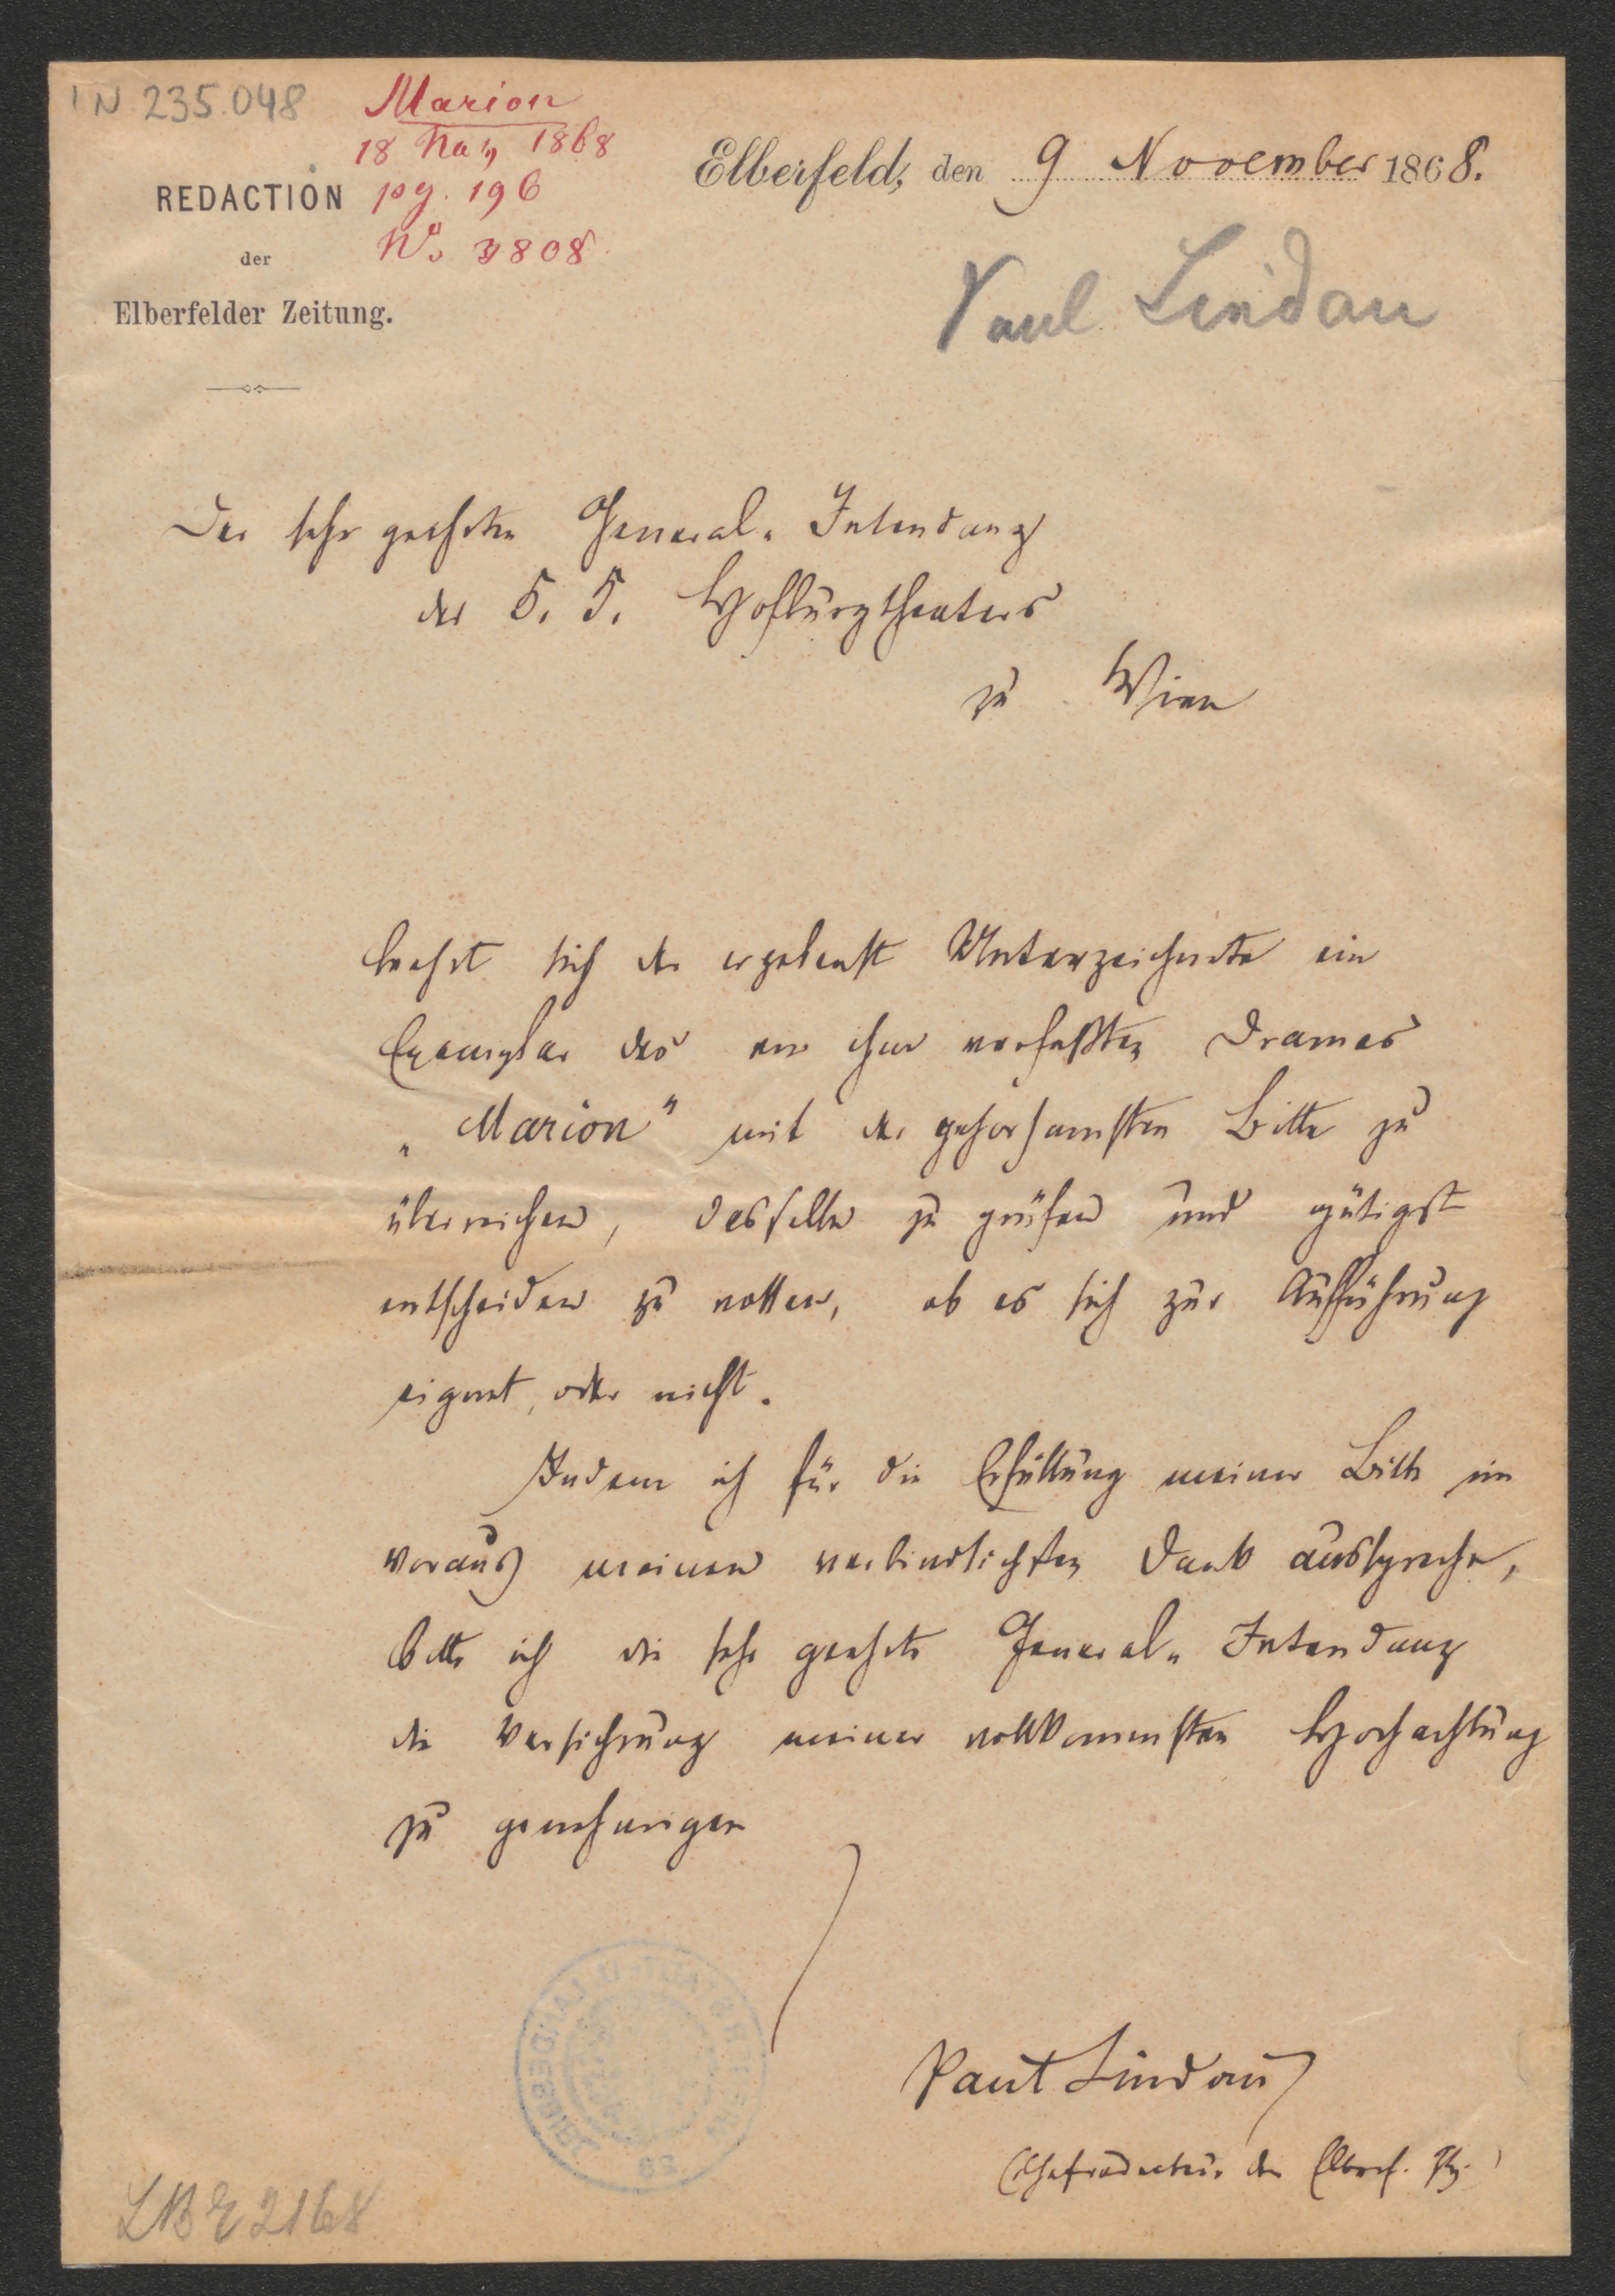 IN 235.048
Marion
18 Nov. 1868
pg. 196
No. 3808
REDACTION
der
Elberfelder Zeitung.
Elberfeld, den 9 November 1868.
Paul Lindau
Der sehr geehrten General-Intendanz
des K. K. Hofburgtheaters
zu Wien
beehrt sich der ergebenst Unterzeichnete ein
Exemplar des von ihm verfaßten Dramas
„Marion" mit der gehorsamsten Bitte zu
überreichen, dasselbe zu prüfen und gütigst
entscheiden zu wollen, ob es sich zur Aufführung
eignet, oder nicht.
Indem ich für die Erfüllung meiner Bitte im
voraus meinen verbindlichsten Dank ausspreche,
bitte ich die sehr geehrte General-Intendanz
die Versicherung meiner vollkommensten Hochachtung
zu genehmigen
Paul Lindau
(Chefredacteur der Elberf. Ztg.)
LBE 2168